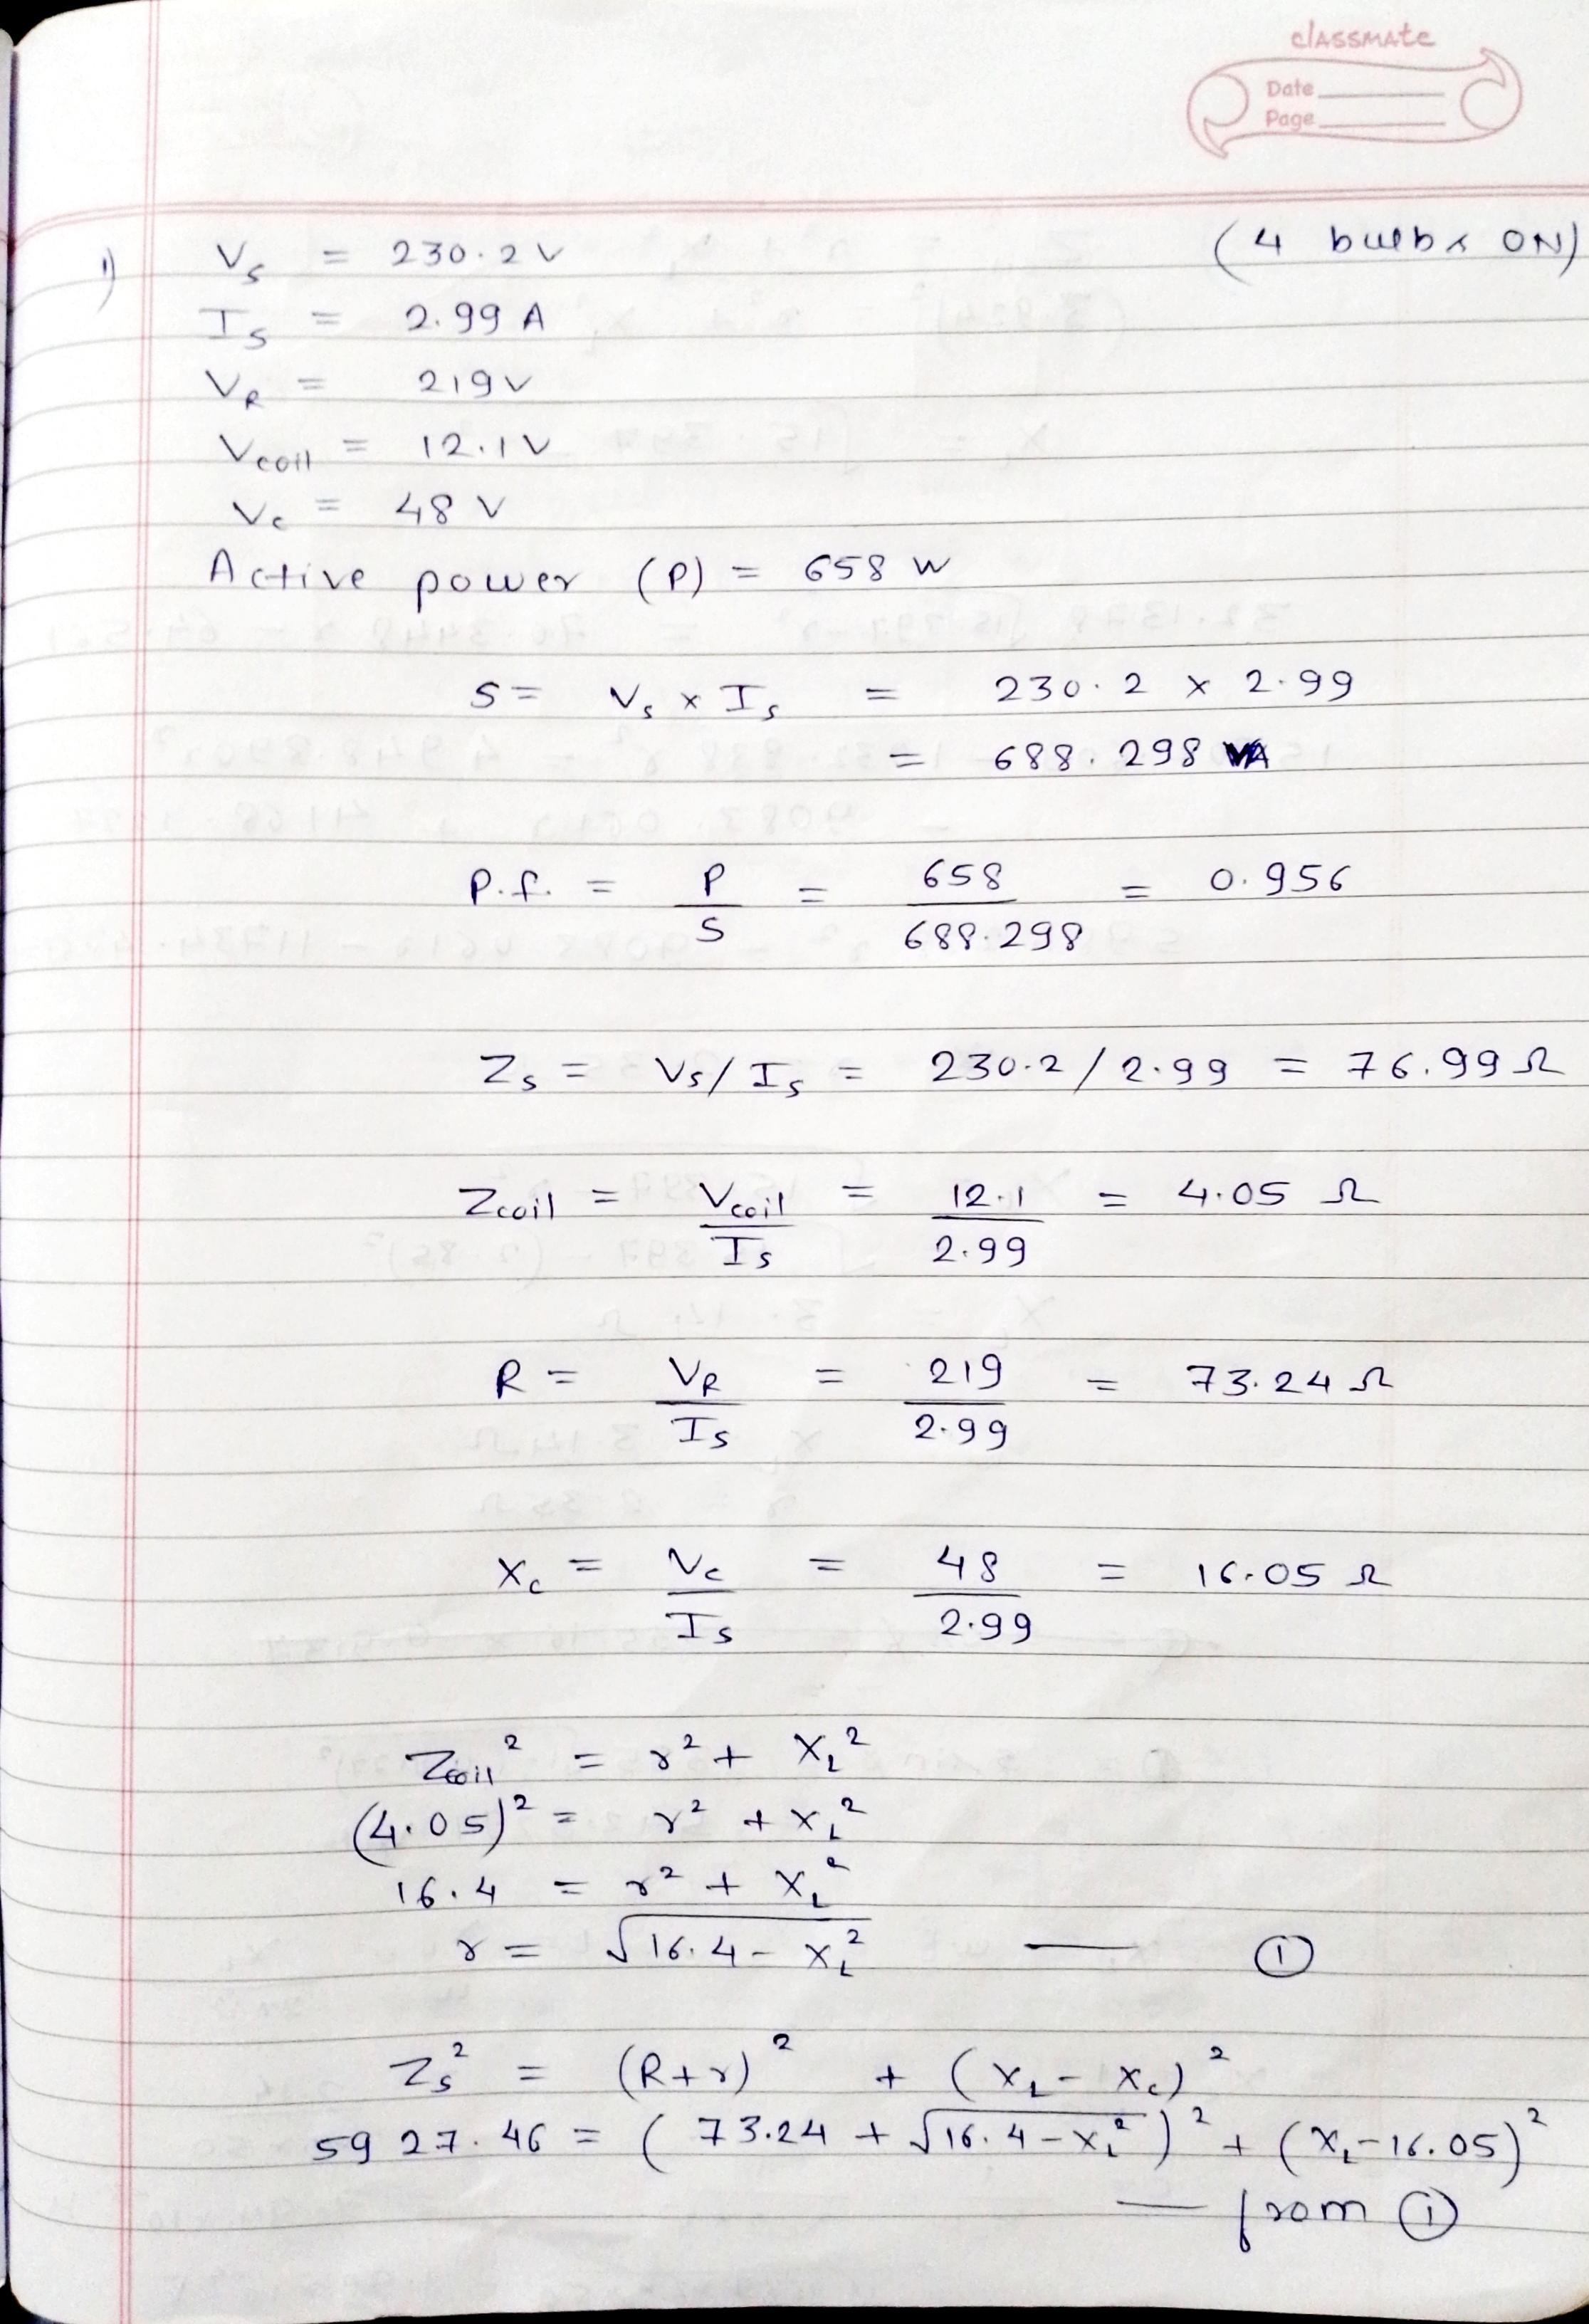 classmate
Date
Page
(4 bulbs ON)
1) Vs = 230.2 V
Is = 2.99 A
VR = 219 V
Vcoil = 12.1 V
Vc = 48 V
Active power (P) = 658 W
S = Vs × Is = 230.2 × 2.99
= 688.298 VA
P.f. = P/S = 658/688.298 = 0.956
Zs = Vs/Is = 230.2/2.99 = 76.99 Ω
Zcoil = Vcoil/Is = 12.1/2.99 = 4.05 Ω
R = VR/Is = 219/2.99 = 73.24 Ω
Xc = Vc/Is = 48/2.99 = 16.05 Ω
Zcoil² = r² + XL²
(4.05)² = r² + XL²
16.4 = r² + XL²
r = √(16.4 - XL²) — ①
Zs² = (R+r)² + (XL - Xc)²
5927.46 = (73.24 + √(16.4 - XL²))² + (XL - 16.05)²
— from ①